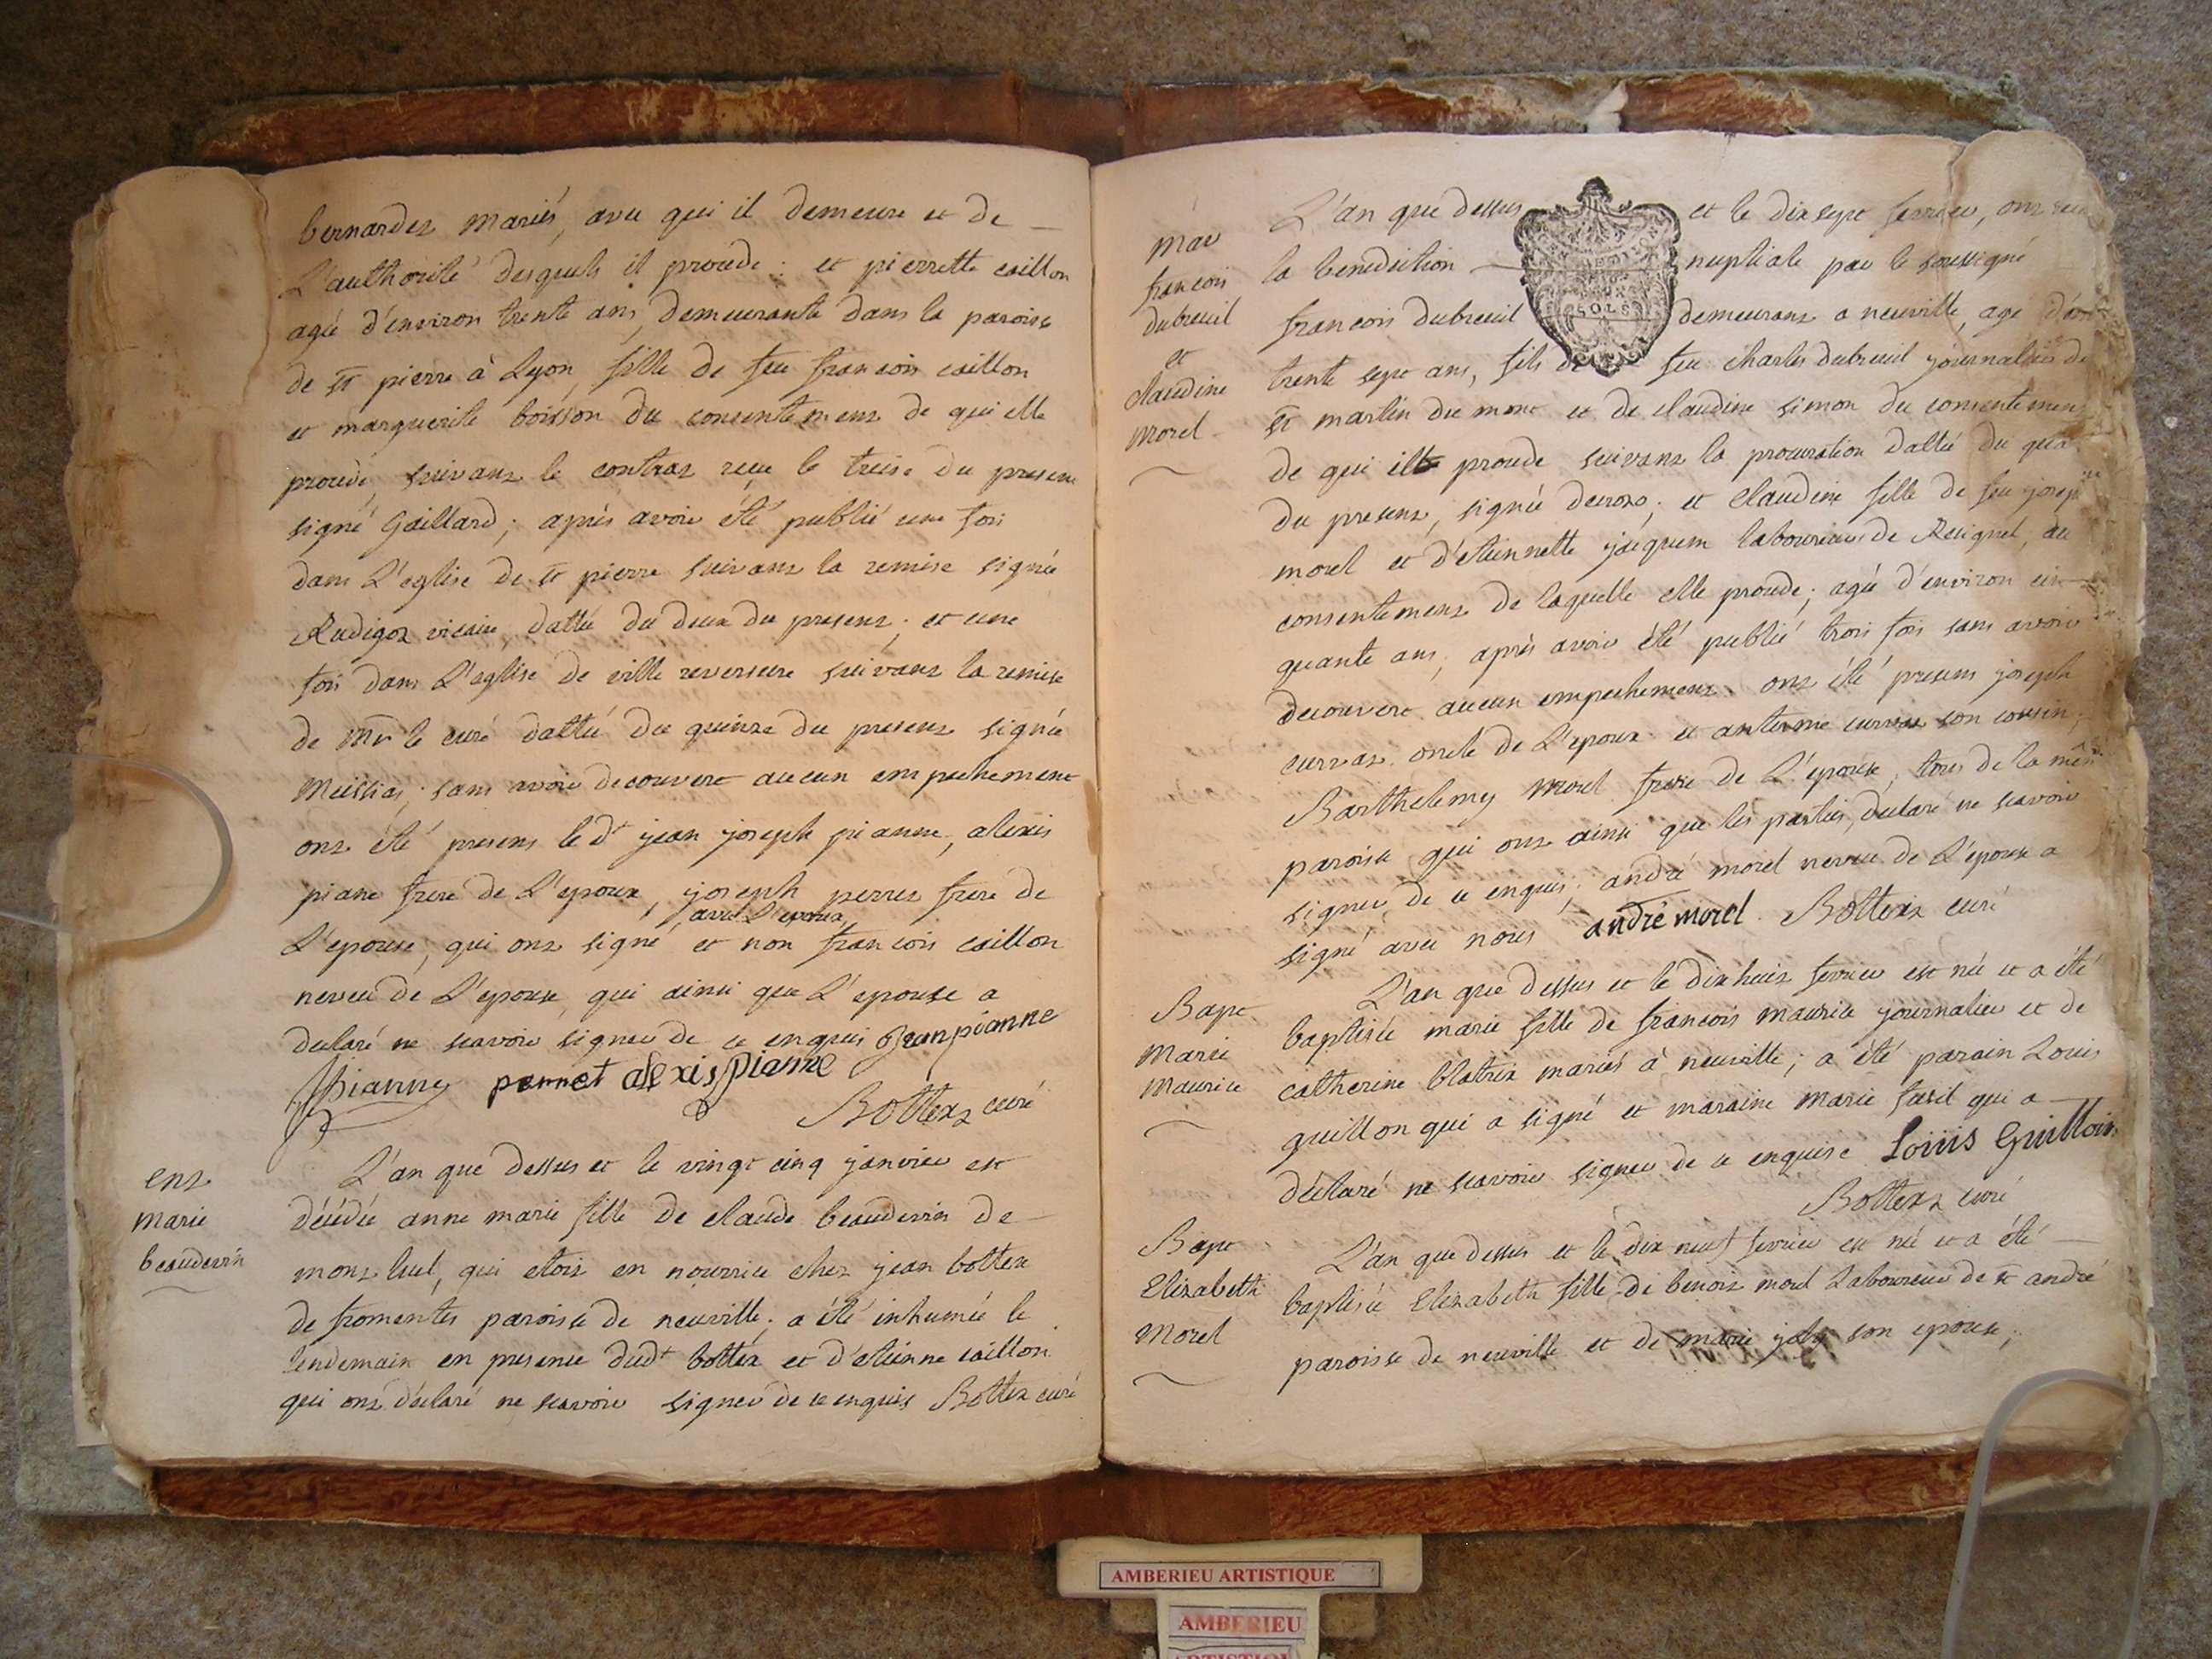 bernardet mariés, avec qui il demeure et de
L'authorité desquels il procede ; et pierrette caillon
agée d'environ trente ans, demeurante dans la paroisse
de st pierre à Lyon, fille de feu francois caillon
et marguerite boisson du consentement de qui elle
procede, suivant le contrat reçu le treise du present
signé Gaillard ; après avoir été publié une fois
dans L'eglise de st pierre suivant la remise signée
vicaire, dattée du deux du present ; et une
fois dans L'eglise de ville reversure suivant la remise
de Mr le curé dattée du quinze du present signée
sans avoir decouvert aucun empechement
ont été presens le dt jean joseph pianne, alexis
piane frere de L'epoux, joseph perret frere de
avec L'epoux
L'epouse, qui ont signé et non francois caillon
neveu de L'epouse, qui ainsi que L'epouse a
declaré ne scavoir signer de ce enquis Jean pianne
pianne perret alexis pianne
Bottex curé
ent
marie
beauderin
L'an que dessus et le vingt cinq janvier est
décédée anne marie fille de claude beauderin de
montluel, qui etoit en nourrice chez jean bottex
de fromentes paroisse de neuville ; a été inhumée le
lendemain en presence dudt bottex et d'etienne caillon
qui ont déclaré ne scavoir signer de ce enquis Bottex curé
mar
francois
dubreuil
et
claudine
morel
L'an que dessus et le dix sept fevrier, ont reçu
la benediction nuptiale par le soussigné
francois dubreuil demeurant a neuville, agé
trente sept ans, fils de feu charles dubreuil journalier de
st martin du mont et de claudine simon du consentement
de qui il procede suivant la procuration dattée du
du present, signée ; et claudine fille de feu joseph
morel et d'etiennette jacquem laboureurs de Reignel, du
consentement de laquelle elle procede ; agée d'environ cin
quante ans, après avoir été publié trois fois sans avoir
decouvert aucun empechement ont été presens joseph
curvat oncle de L'epoux et antoine curvat son cousin,
Barthelemy morel frere de L'epouse, tous de la
paroisse qui ont ainsi que les parties, declaré ne scavoir
signer de ce enquis ; andré morel neveu de L'epouse a
signé avec nous andré morel Bottex curé
Bapt
Marie
Maurice
L'an que dessus et le dix huit fevrier est née et a été
baptisée marie fille de francois maurice journalier et de
catherine blatrix mariés à neuville ; a été parain Louis
guillon qui a signé et maraine marie qui a
déclaré ne scavoir signer de ce enquise Loüis Guilloin
Bottex curé
Bapt
Elizabeth
Morel
L'an que dessus et le dix neuf fevrier est née et a été
baptisée Elizabeth fille de benoit morel Laboureur de st andré
paroisse de neuville et de marie joly son epouse,
SOLS
AMBERIEU ARTISTIQUE
AMBERIEU
ARTISTIQUE